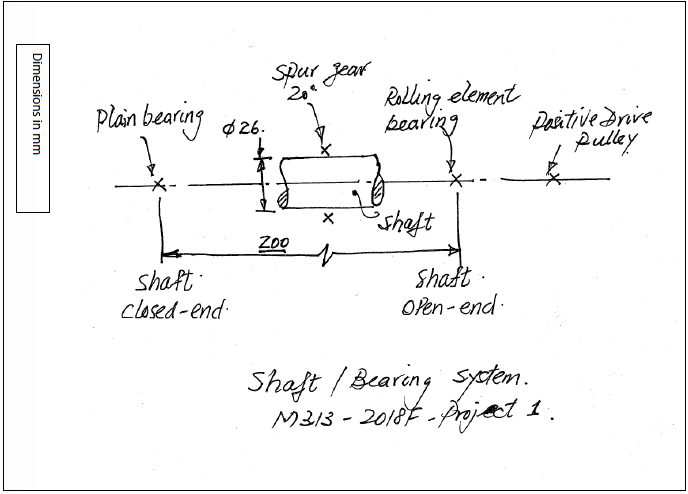 Dimensions in mm
Spur gear
20°
Plain bearing
φ26.
Rolling element
bearing
Positive Drive
Pulley
Shaft
200
Shaft
Closed-end.
Shaft.
Open-end.
Shaft / Bearing System.
M313-2018F-Project 1.